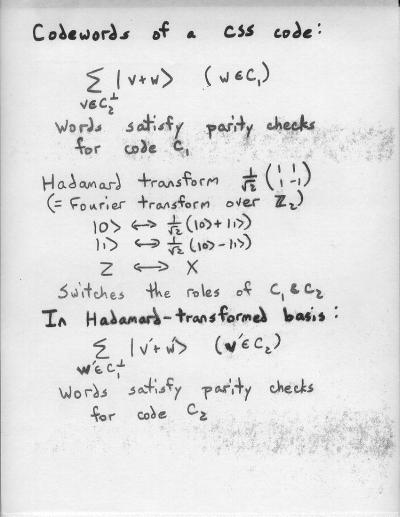 Codewords of a CSS code:
∑ |v+w> (w ∈ C₁)
v∈C₂⊥
Words satisfy parity checks
for code C₁
Hadamard transform 1/√2 (1 1
1 -1)
(= Fourier transform over ℤ₂)
|0> ↔ 1/√2 (|0> + |1>)
|1> ↔ 1/√2 (|0> - |1>)
Z ↔ X
Switches the roles of C₁ & C₂
In Hadamard-transformed basis:
∑ |v'+w'> (v'∈C₂)
w'∈C₁⊥
Words satisfy parity checks
for code C₂